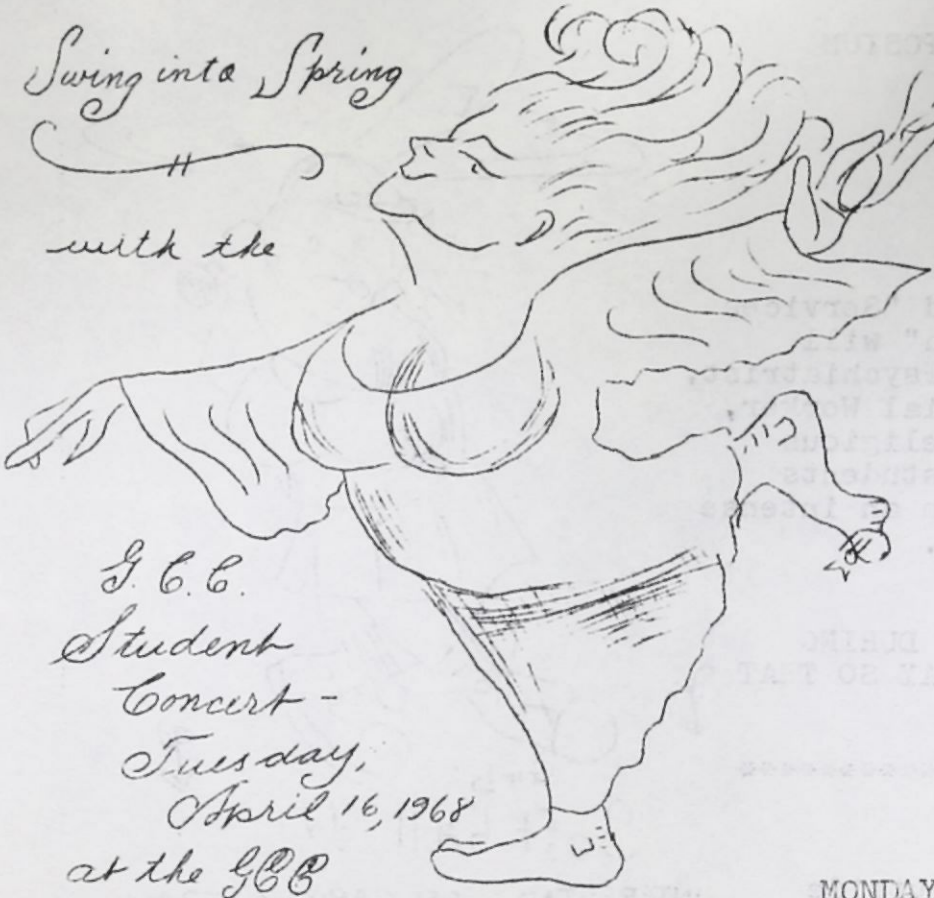 Swing into Spring
with the
G. C. C.
Student
Concert -
Tuesday,
April 16, 1968
at the GCC
MONDAY